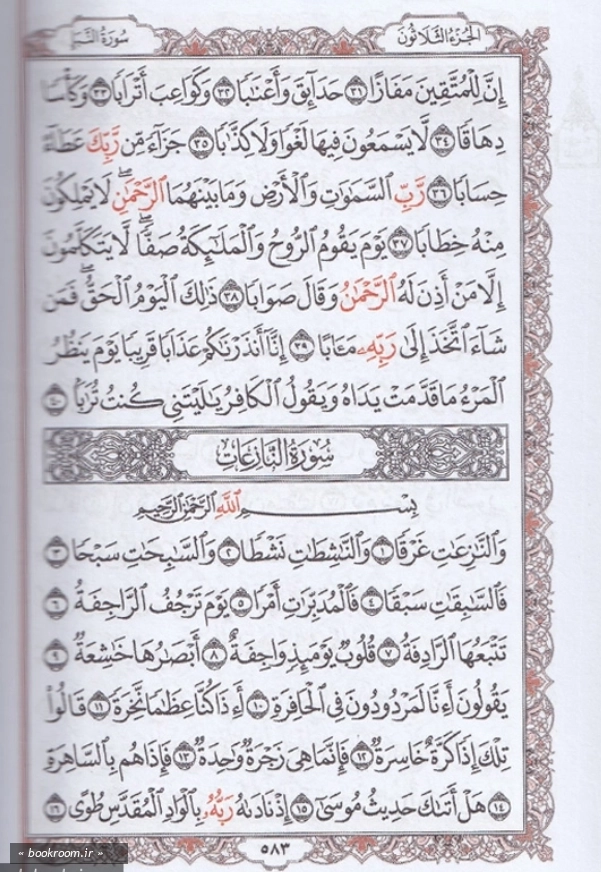 الجزء الثلاثون سورة النبإ
إِنَّ لِلْمُتَّقِينَ مَفَازًا ٣١ حَدَائِقَ وَأَعْنَابًا ٣٢ وَكَوَاعِبَ أَتْرَابًا ٣٣ وَكَأْسًا
دِهَاقًا ٣٤ لَّا يَسْمَعُونَ فِيهَا لَغْوًا وَلَا كِذَّابًا ٣٥ جَزَاءً مِّن رَّبِّكَ عَطَاءً
حِسَابًا ٣٦ رَّبِّ السَّمَٰوَٰتِ وَالْأَرْضِ وَمَا بَيْنَهُمَا الرَّحْمَٰنِ ۖ لَا يَمْلِكُونَ
مِنْهُ خِطَابًا ٣٧ يَوْمَ يَقُومُ الرُّوحُ وَالْمَلَٰئِكَةُ صَفًّا ۖ لَّا يَتَكَلَّمُونَ
إِلَّا مَنْ أَذِنَ لَهُ الرَّحْمَٰنُ وَقَالَ صَوَابًا ٣٨ ذَٰلِكَ الْيَوْمُ الْحَقُّ ۖ فَمَن
شَاءَ اتَّخَذَ إِلَىٰ رَبِّهِ مَـَٔابًا ٣٩ إِنَّا أَنذَرْنَاكُمْ عَذَابًا قَرِيبًا يَوْمَ يَنظُرُ
الْمَرْءُ مَا قَدَّمَتْ يَدَاهُ وَيَقُولُ الْكَافِرُ يَا لَيْتَنِي كُنتُ تُرَابًا ٤٠
سُورَةُ النَّازِعَاتِ
بِسْمِ اللَّهِ الرَّحْمَٰنِ الرَّحِيمِ
وَالنَّازِعَاتِ غَرْقًا ١ وَالنَّاشِطَاتِ نَشْطًا ٢ وَالسَّابِحَاتِ سَبْحًا ٣
فَالسَّابِقَاتِ سَبْقًا ٤ فَالْمُدَبِّرَاتِ أَمْرًا ٥ يَوْمَ تَرْجُفُ الرَّاجِفَةُ ٦
تَتْبَعُهَا الرَّادِفَةُ ٧ قُلُوبٌ يَوْمَئِذٍ وَاجِفَةٌ ٨ أَبْصَارُهَا خَاشِعَةٌ ٩
يَقُولُونَ أَءِنَّا لَمَرْدُودُونَ فِي الْحَافِرَةِ ١٠ أَءِذَا كُنَّا عِظَامًا نَّخِرَةً ١١ قَالُوا
تِلْكَ إِذًا كَرَّةٌ خَاسِرَةٌ ١٢ فَإِنَّمَا هِيَ زَجْرَةٌ وَاحِدَةٌ ١٣ فَإِذَا هُم بِالسَّاهِرَةِ
١٤ هَلْ أَتَىٰكَ حَدِيثُ مُوسَىٰ ١٥ إِذْ نَادَىٰهُ رَبُّهُ بِالْوَادِ الْمُقَدَّسِ طُوًى ١٦
٥٨٣
« bookroom.ir »